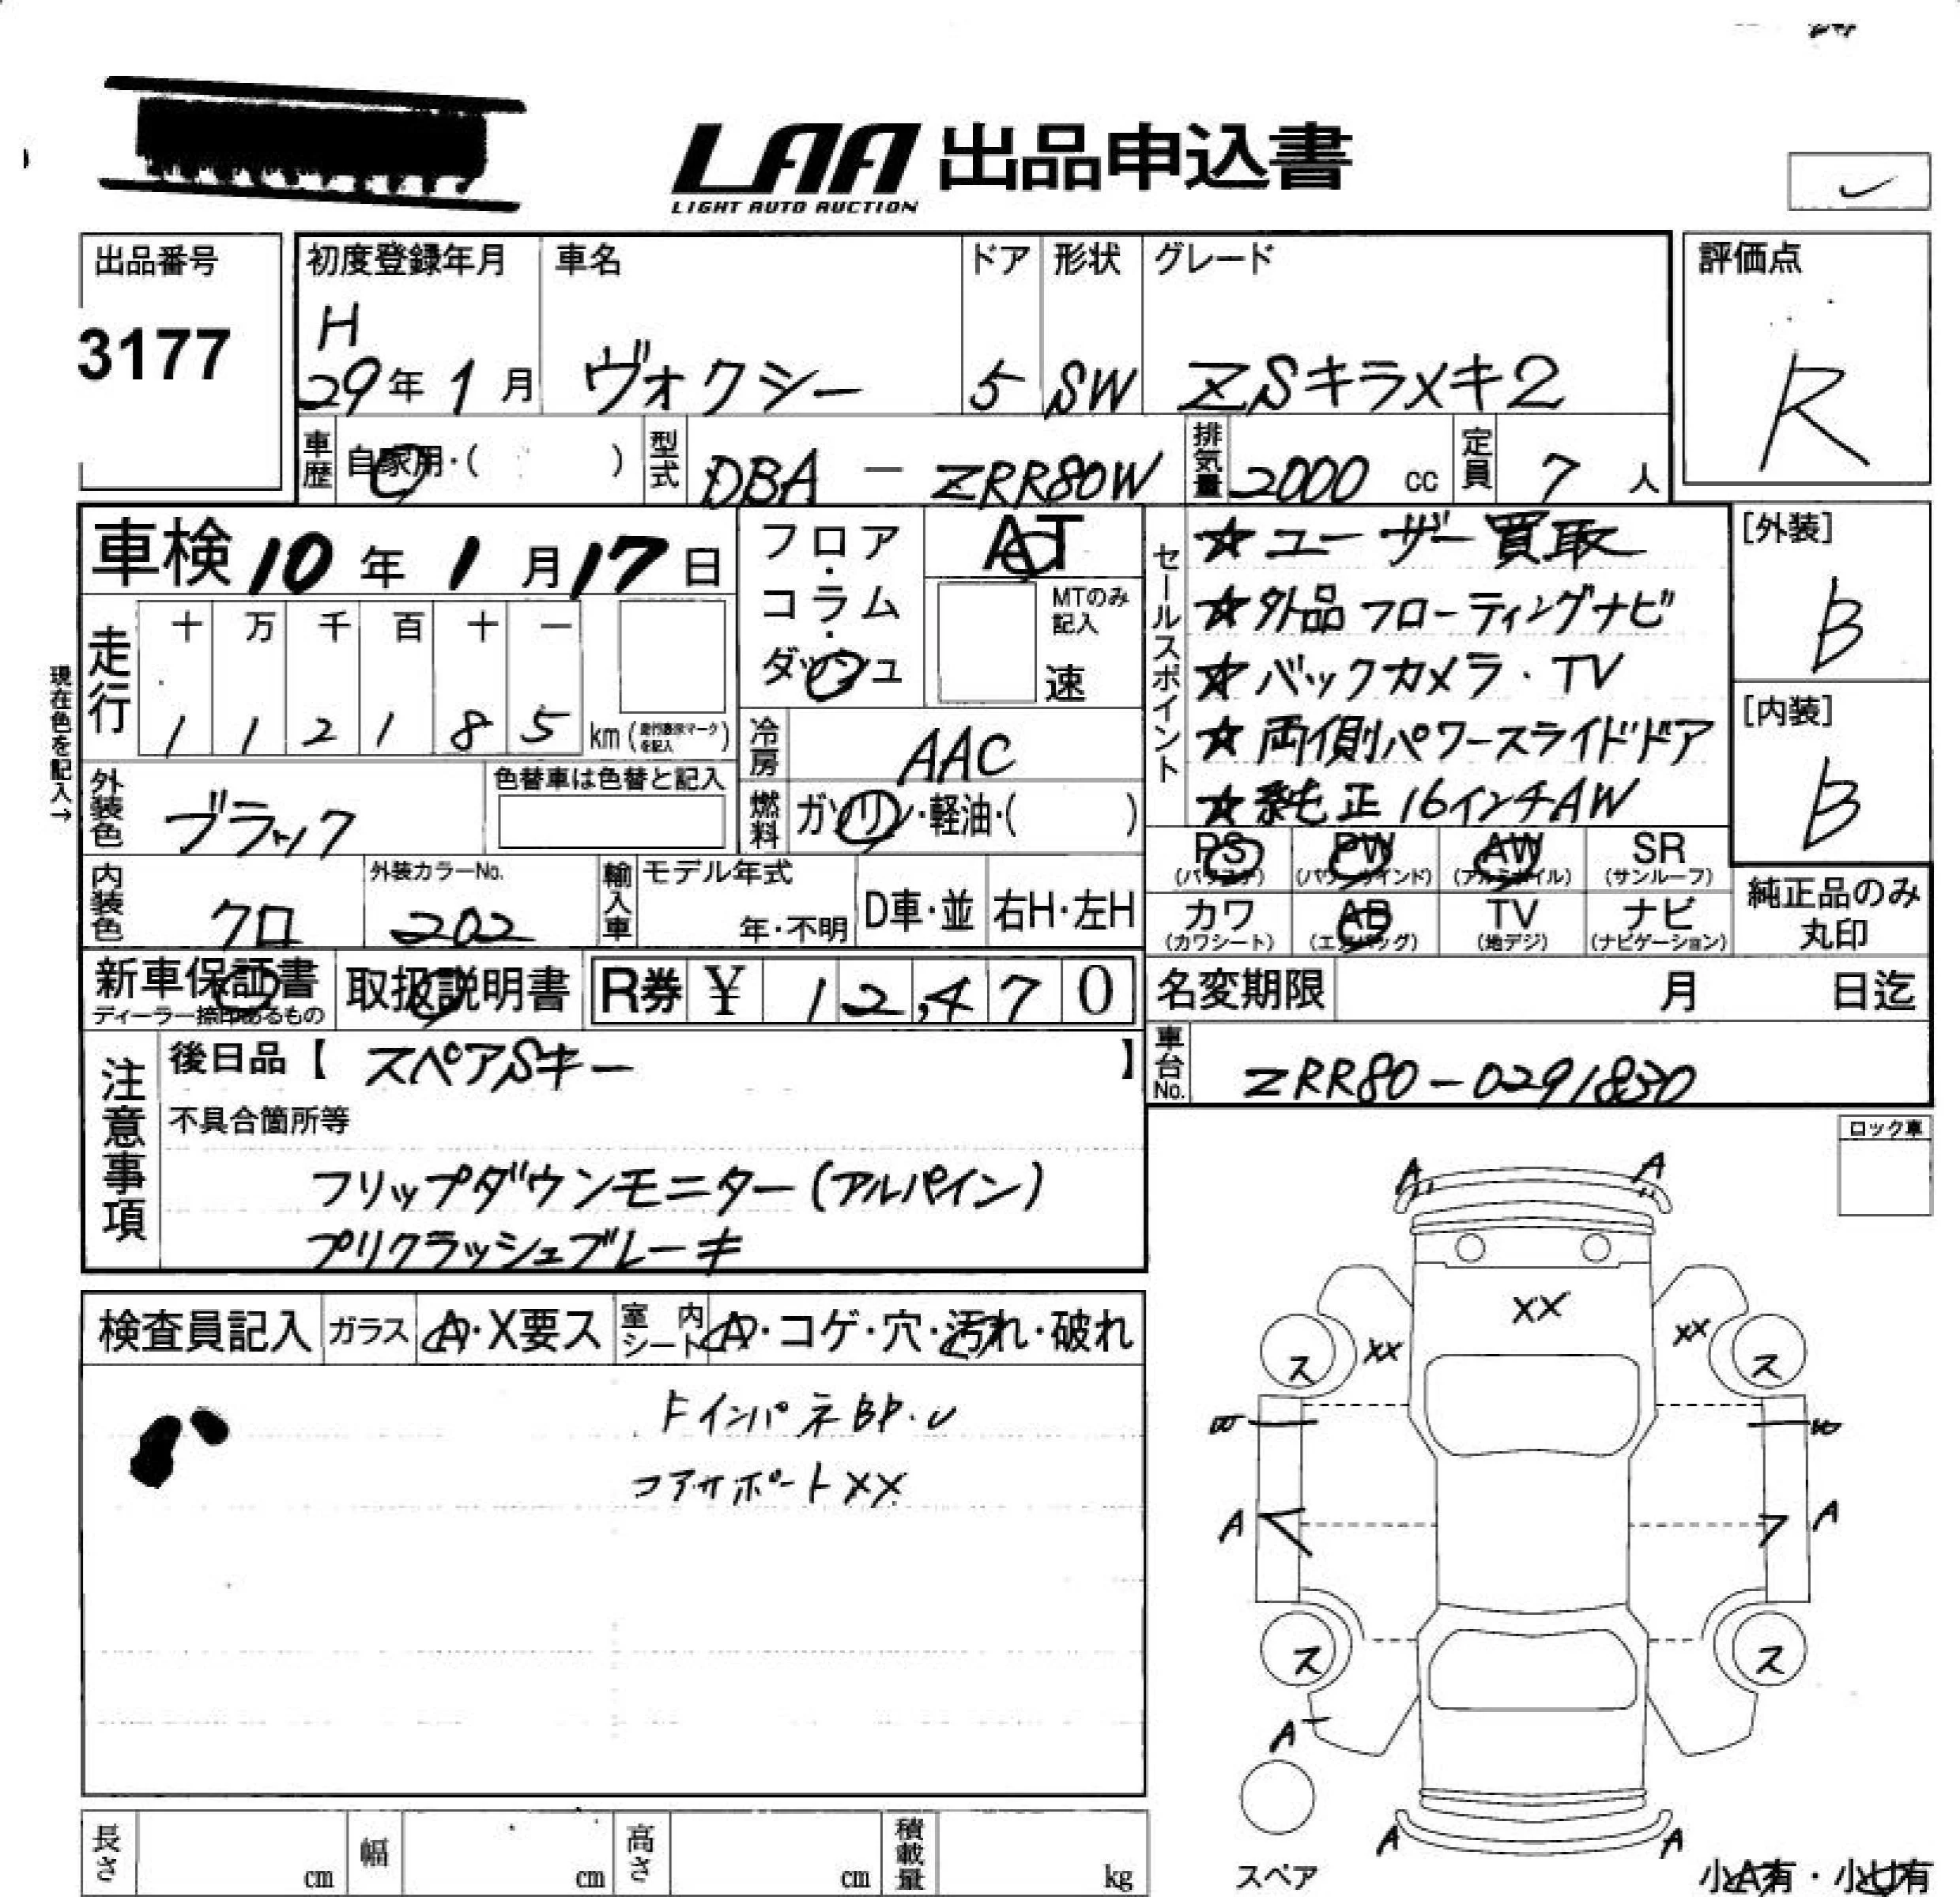 LAA 出品申込書
LIGHT AUTO AUCTION
出品番号
3177
初度登録年月
H
29年 1月
車名
ヴォクシー
ドア
5
形状
SW
グレード
ZSキラメキ2
評価点
R
車歴
自家用・( )
型式
DBA - ZRR80W
排気量
2000 cc
定員
7 人
車検 10年 1月 17日
フロア・コラム・ダッシュ
AT
MTのみ記入
速
セールスポイント
☆ユーザー買取
☆外品フローティングナビ
☆バックカメラ・TV
☆両側パワースライドドア
☆純正16インチAW
[外装]
B
[内装]
B
現在色を記入→
走行
十 万 千 百 十 一
1 1 2 1 8 5 km (走行距離マークを記入)
冷房
AAC
外装色
ブラック
色替車は色替と記入
燃料
ガソリン・軽油・( )
PS (パワステ)
PW (パワーウインド)
AW (アルミホイル)
SR (サンルーフ)
カワ (カワシート)
AB (エアバッグ)
TV (地デジ)
ナビ (ナビゲーション)
純正品のみ丸印
内装色
クロ
外装カラーNo.
202
輸入車
モデル年式
年・不明
D車・並
右H・左H
新車保証書
ディーラー捺印あるもの
取扱説明書
R券 ¥ 12,470
名変期限 月 日迄
車台No.
ZRR80-0291830
注意事項
後日品【 スペアSキー 】
不具合箇所等
フリップダウンモニター(アルパイン)
プリクラッシュブレーキ
ロック車
検査員記入
ガラス
A・X要ス
室内シート
A・コゲ・穴・汚れ・破れ
トインパネBP.U
コアサポートXX
A A
XX
XX XX
ス ス
B B
A A
ス ス
A
A A
スペア
小A有・小U有
長さ cm
幅 cm
高さ cm
積載量 kg